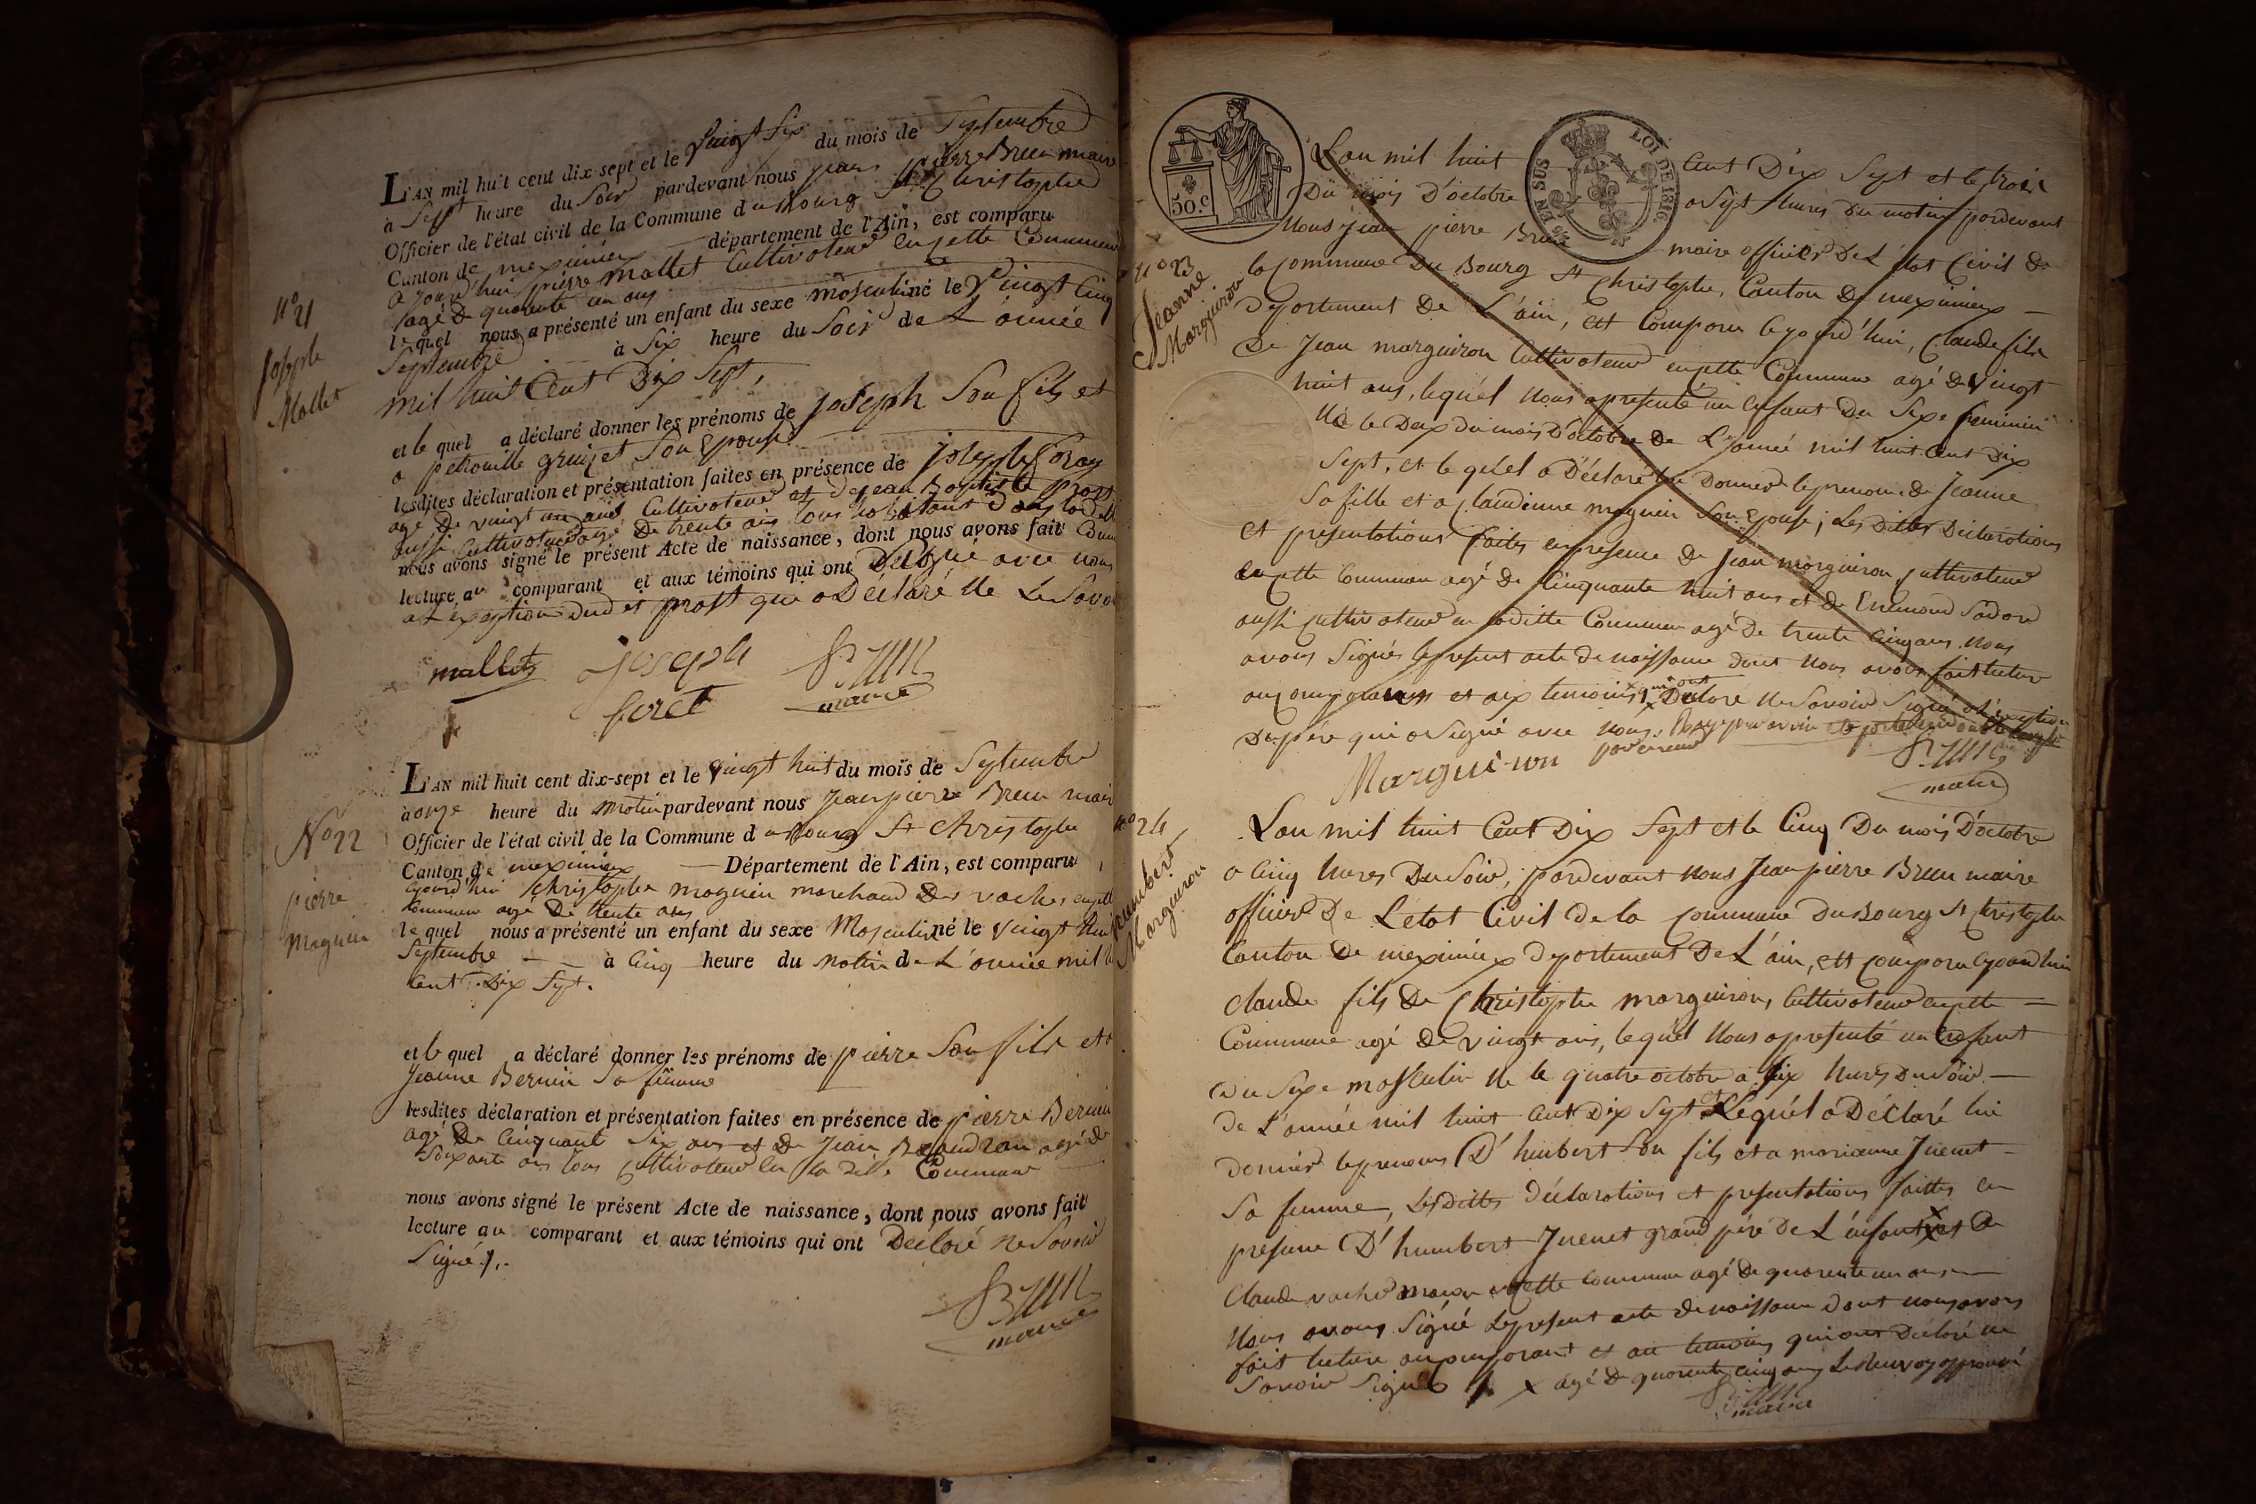 L'AN mil huit cent dix-sept et le vingt Six du mois de Septembre
à Sept heure du Soir pardevant nous jean pierre Brun maire
Officier de l'état civil de la Commune d u Bourg St Christophe
Canton de meximieux département de l'Ain, est comparu
aujourd'hui pierre mallet Cultivateur en cette Commune
agé de quarente un ans
lequel nous a présenté un enfant du sexe masculin né le Vingt Cinq
Septembre à Six heure du Soir de L'année
mil huit Cent Dix Sept,
et le quel a déclaré donner les prénoms de joseph Son fils et
a petronille Son Epouse
lesdites déclaration et présentation faites en présence de joseph
agé de vingt un ans Cultivateur et de jean Baptiste prost
aussi Cultivateur agé De trente ans tous habitant dans
nous avons signé le présent Acte de naissance, dont nous avons fait
lecture au comparant et aux témoins qui ont Signé avec nous
a L'exception dudit prost qui a Déclaré Ne Le Savoir
n° 21
Joseph
Mallet
mallet joseph Brun
foret maire
L'AN mil huit cent dix-sept et le vingt huit du mois de Septembre
à onze heure du matin pardevant nous Jean pierre Brun maire
Officier de l'état civil de la Commune d u Bourg St Christophe
Canton de meximieux Département de l'Ain, est comparu
ajourd'hui Christophe magnin marchand de vaches en cette
Commune agé De trente ans
lequel nous a présenté un enfant du sexe Masculin né le vingt huit
Septembre à Cinq heure du matin de L'année mil
Cent Dix Sept.
et le quel a déclaré donner les prénoms de pierre Son fils et
Jeanne Bernin Sa femme
lesdites déclaration et présentation faites en présence de pierre Bernin
agé De Cinquante Six ans et De Jean agé de
Soixante ans tous Cultivateur en la dite Commune
nous avons signé le présent Acte de naissance, dont nous avons fait
lecture au comparant et aux témoins qui ont Déclaré ne Savoir
Signé.
N° 22
pierre
Magnin
Brun
maire
50.c
EN SUS
LOI DE 1816.
n° 23
Jeanne
Marguiron
Lan mil huit Cent Dix Sept et le trois
Du mois D'octobre a Sept heures du matin pardevant
Nous Jean pierre Brun maire officier De L'état Civil de
la Commune Du Bourg St Christophe, Canton De meximieux
departement De L'ain, est Comparu cejourd'hui, Claude fils
De Jean marguiron Cultivateur en cette Commune agé de Vingt
huit ans, lequel Nous a presenté un Enfant Du Sexe feminin
Né le Deux du mois D'octobre De L'année mil huit Cent Dix
Sept, et le quel a Déclaré lui Donner le prenom de Jeanne
Sa fille et a Claudinne magnin Son Epouse; Les Dittes Declarations
et presentations faites en presence de Jean marguiron Cultivateur
en cette Commune agé de Cinquante huit ans et de Enemond
aussi Cultivateur en ladite Commune agé De trente Cinq ans Nous
avons Signés le present acte de naissance dont Nous avons fait lecture
aux comparans et aux temoins qui ont Déclaré Ne Savoir Signé a L'exception
Du père qui a Signé avec nous.
par erreur
Marguiron Brun
maire
n° 24
humbert
Marguiron
Lan mil huit Cent Dix Sept et le Cinq Du mois D'octobre
a Cinq heures Du Soir, pardevant Nous Jean pierre Brun maire
officier De L'état Civil de la Commune Du Bourg St Christophe
Canton De meximieux departement De L'ain, est comparu cejourd'hui
Claude fils De Christophe marguiron, Cultivateur en cette
Commune agé De vingt ans, lequel Nous a presenté un Enfant
Du Sexe masculin Ne le quatre octobre a Six heures Du Soir
de L'année mil huit Cent Dix Sept et Lequel a Déclaré lui
donner le prenom D'humbert Son fils et a marianne Juenet
Sa femme, Lesdittes Déclarations et presentations faittes en
presence D'humbert Juenet grand pere de L'enfant x et De
Claude vacher maçon en cette Commune agé De quarente un ans
Nous avons Signé le present acte de naissance Dont nous avons
fait lecture au comparant et au temoins qui ont Déclaré ne
Savoir Signé. x agé De quarente cinq ans Le Renvoy approuvé
Brun
maire